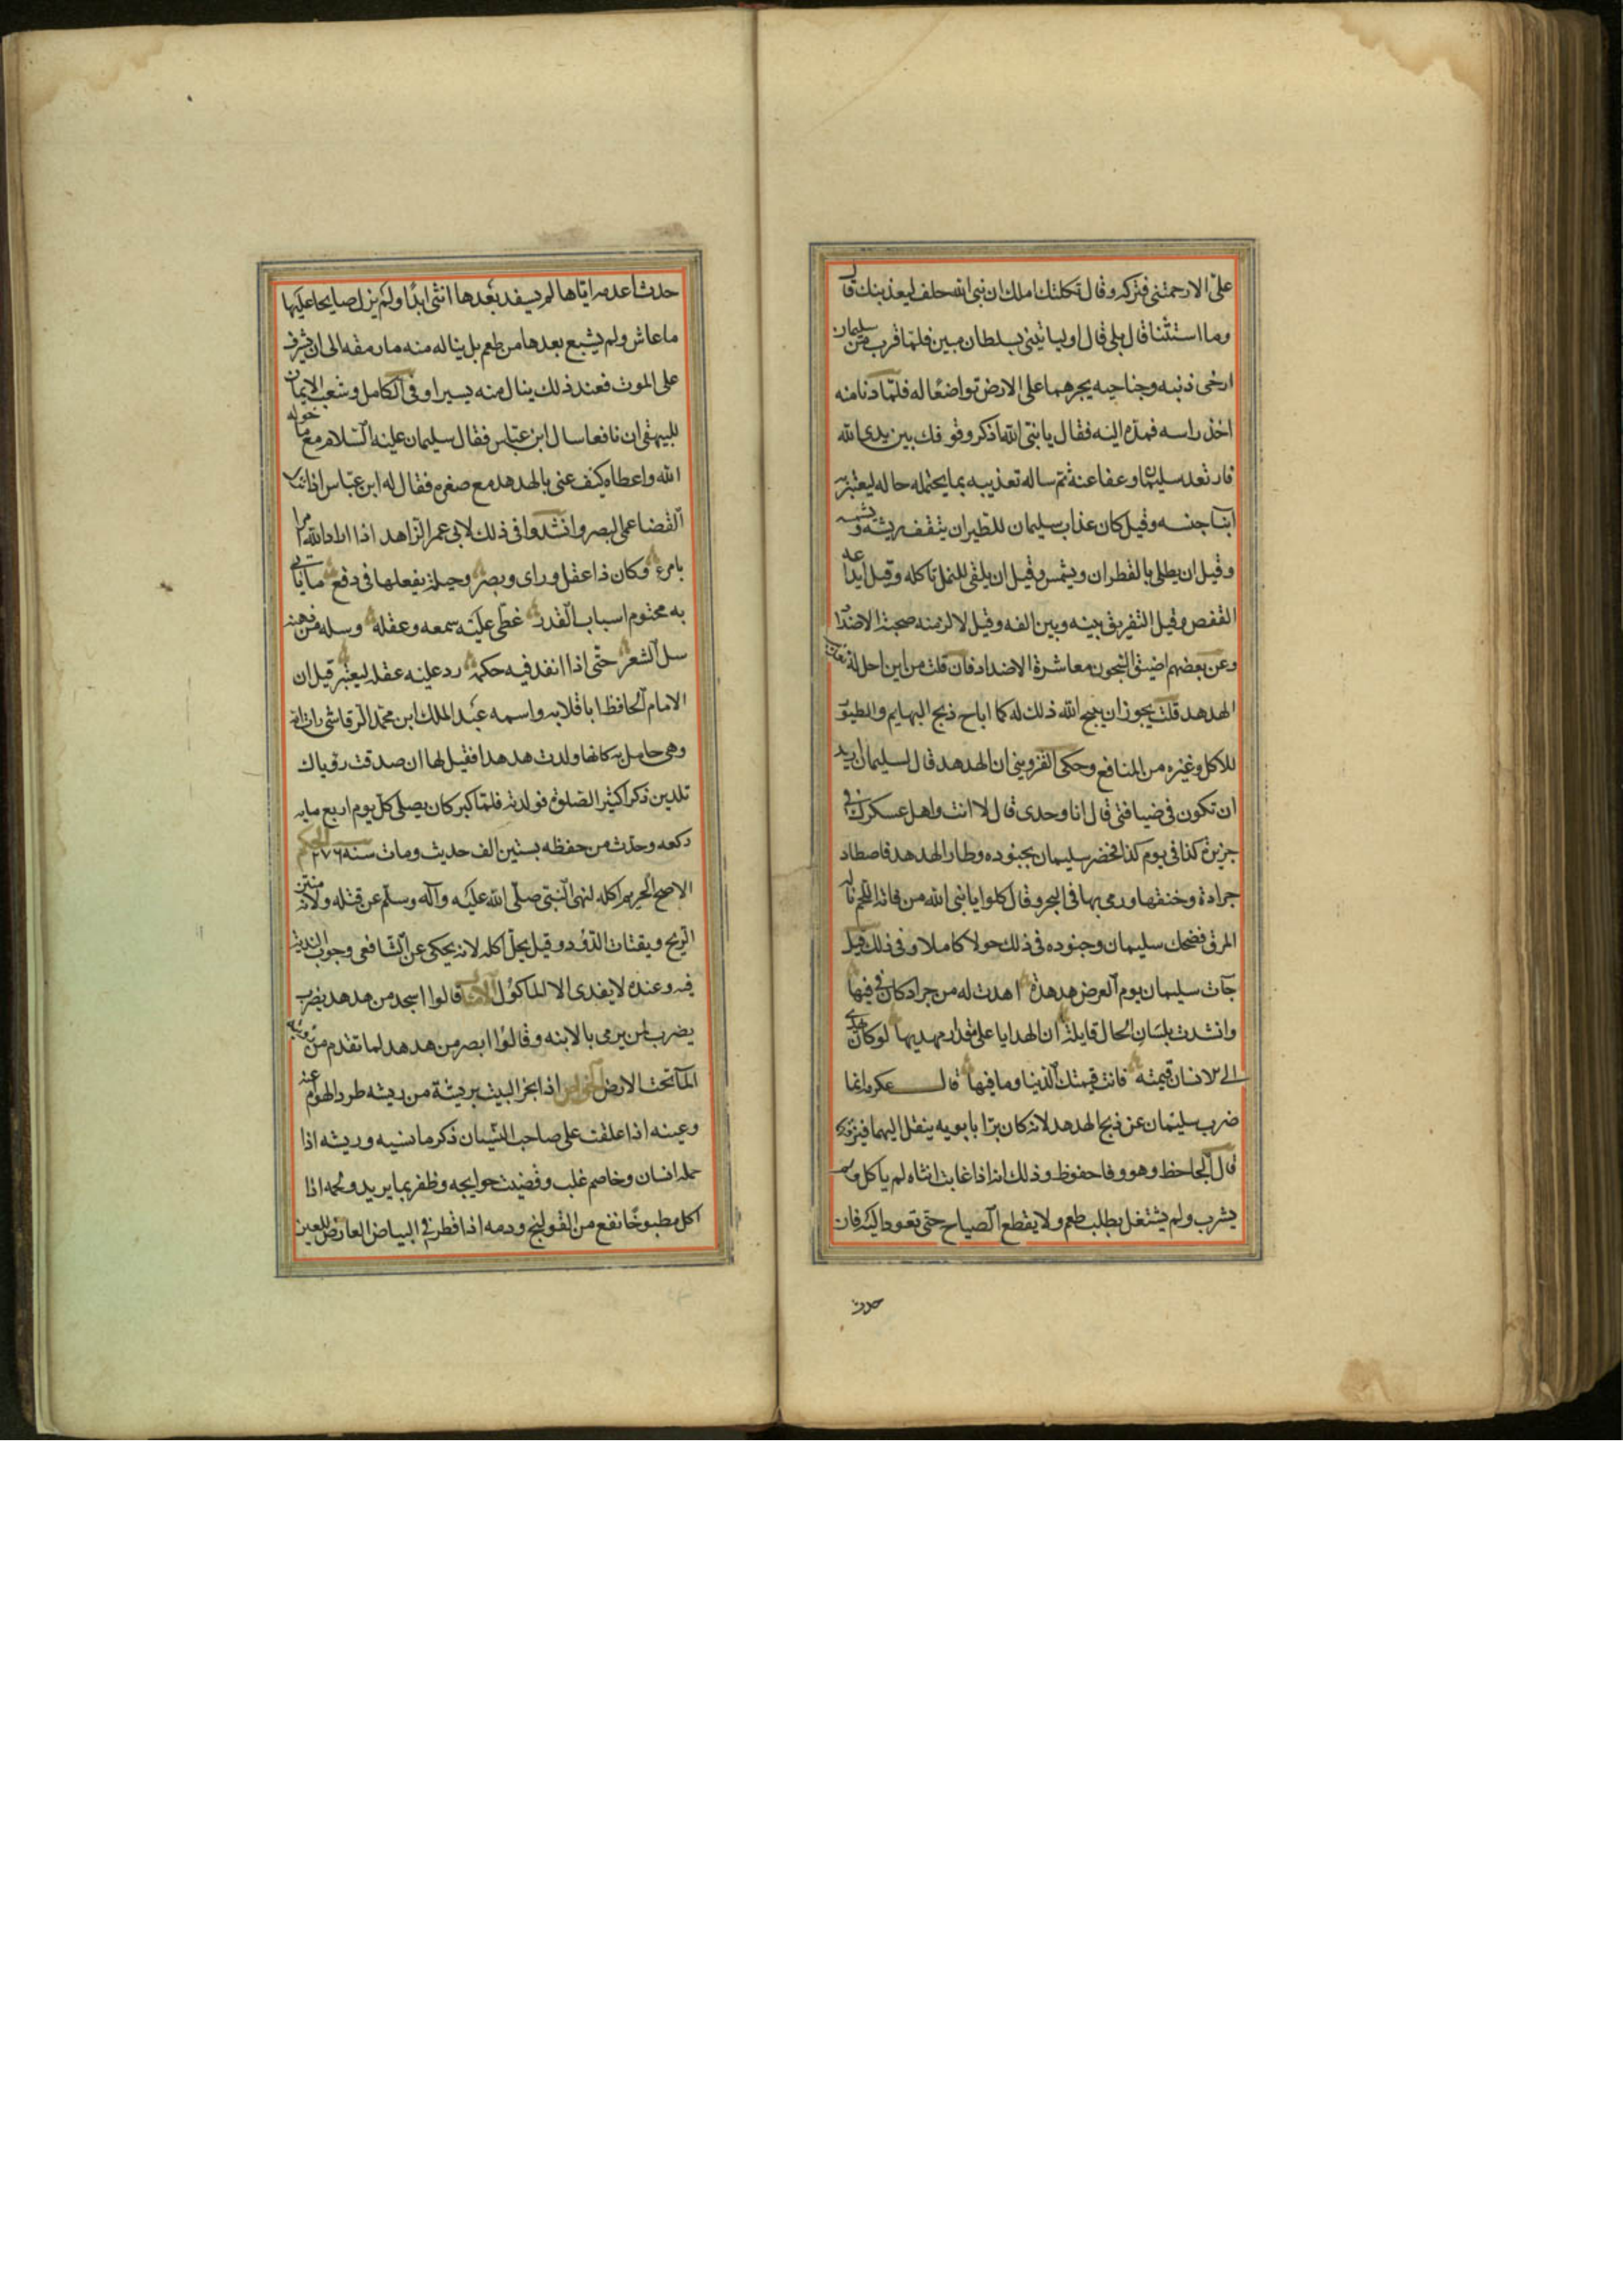 علىّ الا رحمتنى فتركه وقال ثكلتك امك ان نبى الله حلف ليعذبنك قال
وما استثنا قال بلى قال اوليا تينى بسلطان مبين فلمّا قرب من سليمان
ارخى ذنبه وجناحيه يجرهما على الارض تواضعًا له فلمّا دنا منه
اخذ راسه فمدّه اليه فقال يا نبىّ الله اذكر وقوفك بين يدى الله
فارتعد سليمان وعفا عنه ثم ساله تعذيبه بما يحتمله حاله ليعتبر به
ابنا جنسه وقيل كان عذاب سليمان للطير ان ينتف ريشه و يشمسه
وقيل ان يطلى بالقطران ويشمس وقيل ان يلقى للنمل تاكله وقيل ايداعه
القفص وقيل التفريق بينه وبين الفه وقيل لالزمنه صحبة الاضداد
وعن بعضهم اضيق السجون معاشرة الاضداد فان قلت من اين احل له تعذيب
الهدهد قلت يجوز ان يبيح الله ذلك له كما اباح ذبح البهايم والطيور
للاكل وغيره من المنافع وحكى القزوينى ان الهدهد قال لسليمان اريد
ان تكون فى ضيافتى قال انا وحدى قال لا انت واهل عسكرك فى
جزيرة كذا فى يوم كذا فحضر سليمان بجنوده وطار الهدهد فاصطاد
جرادة وخنقها ورمى بها فى البحر وقال كلوا يا نبى الله من فاته اللحم ناله
المرق فضحك سليمان وجنوده فى ذلك حولا كاملا وفى ذلك قيل
جآت سليمان يوم العرض هدهدة اهدت له من جراد كان فى فيها
وانشدت بلسان الحال قايلة ان الهدايا على مقدار مهديها لو كان يهدى
الى الانسان قيمته فانت قيمتك الدنيا وما فيها قال عكرمه انما
ضرب سليمان عن ذبح الهدهد لانه كان برّا بابويه ينقل اليهما فيزقهما
قال الجاحظ وهو وفا حفوظ وذلك انه اذا غابت انثاه لم ياكل ولم
يشرب ولم يشتغل بطلب طعم ولا يقطع الصياح حتى تعود اليه فان
حدث
حدث اعدمه ايّاها لم يسفد بعدها انثى ابدًا ولم يزل صايحا عليها
ما عاش ولم يشبع بعدها من طعم بل يناله منه ما رمقه الى ان يشرف
على الموت فعند ذلك ينال منه يسيرا وفى الكامل وشعب الايمان
للبيهقى ان نافعا سال ابن عباس فقال سليمان عليه السلام مع ما خوله
الله واعطاه كيف عنى بالهدهد مع صغره فقال له ابن عباس
القضا عمى البصر وانشدوا فى ذلك لابى عمر الزاهد اذا اراد الله امرا
بامرء وكان ذا عقل وراى وبصر وحيلة يفعلها فى دفع ما ياتى
به محتوم اسباب القدر غطى عليه سمعه وعقله وسله من ذهنه
سل الشعر حتّى اذا انفذ فيه حكمه رد عليه عقله ليعتبر قيل ان
الامام الحافظ ابا قلابه واسمه عبد الملك ابن محمّد الرقاشى رات امّه
وهى حامل به كانها ولدت هدهدا فقيل لها ان صدقت رؤياك
تلدين ذكرا كثير الصلوة فولدته فلمّا كبر كان يصلى كل يوم اربع مايه
ركعه وحدث من حفظه بستين الف حديث ومات سنه ٢٧٦ الحكم
الاصح تحريم اكله لنهى النبى صلّى الله عليه وآله وسلم عن قتله ولانه منتن
الريح ويقتات الدود وقيل يحل اكله لانه يحكى عن الشافعى وجوب الفديه
فيه وعنده لا يفدى الا الماكول الامثال قالوا اسجد من هدهد يضرب
يضرب لمن يرمى بالابنه وقالوا ابصر من هدهد لما تقدم من رويته
المآ تحت الارض الخواص اذا بخر البيت بريشة من ريشه طرد الهوام عنه
وعينه اذا علقت على صاحب النسيان ذكر ما نسيه وريشه اذا
حمله انسان وخاصم غلب وقضيت حوايجه وظفر بما يريد ولحمه اذا
اكل مطبوخًا نفع من القولنج ودمه اذا قطر فى البياض العارض للعين